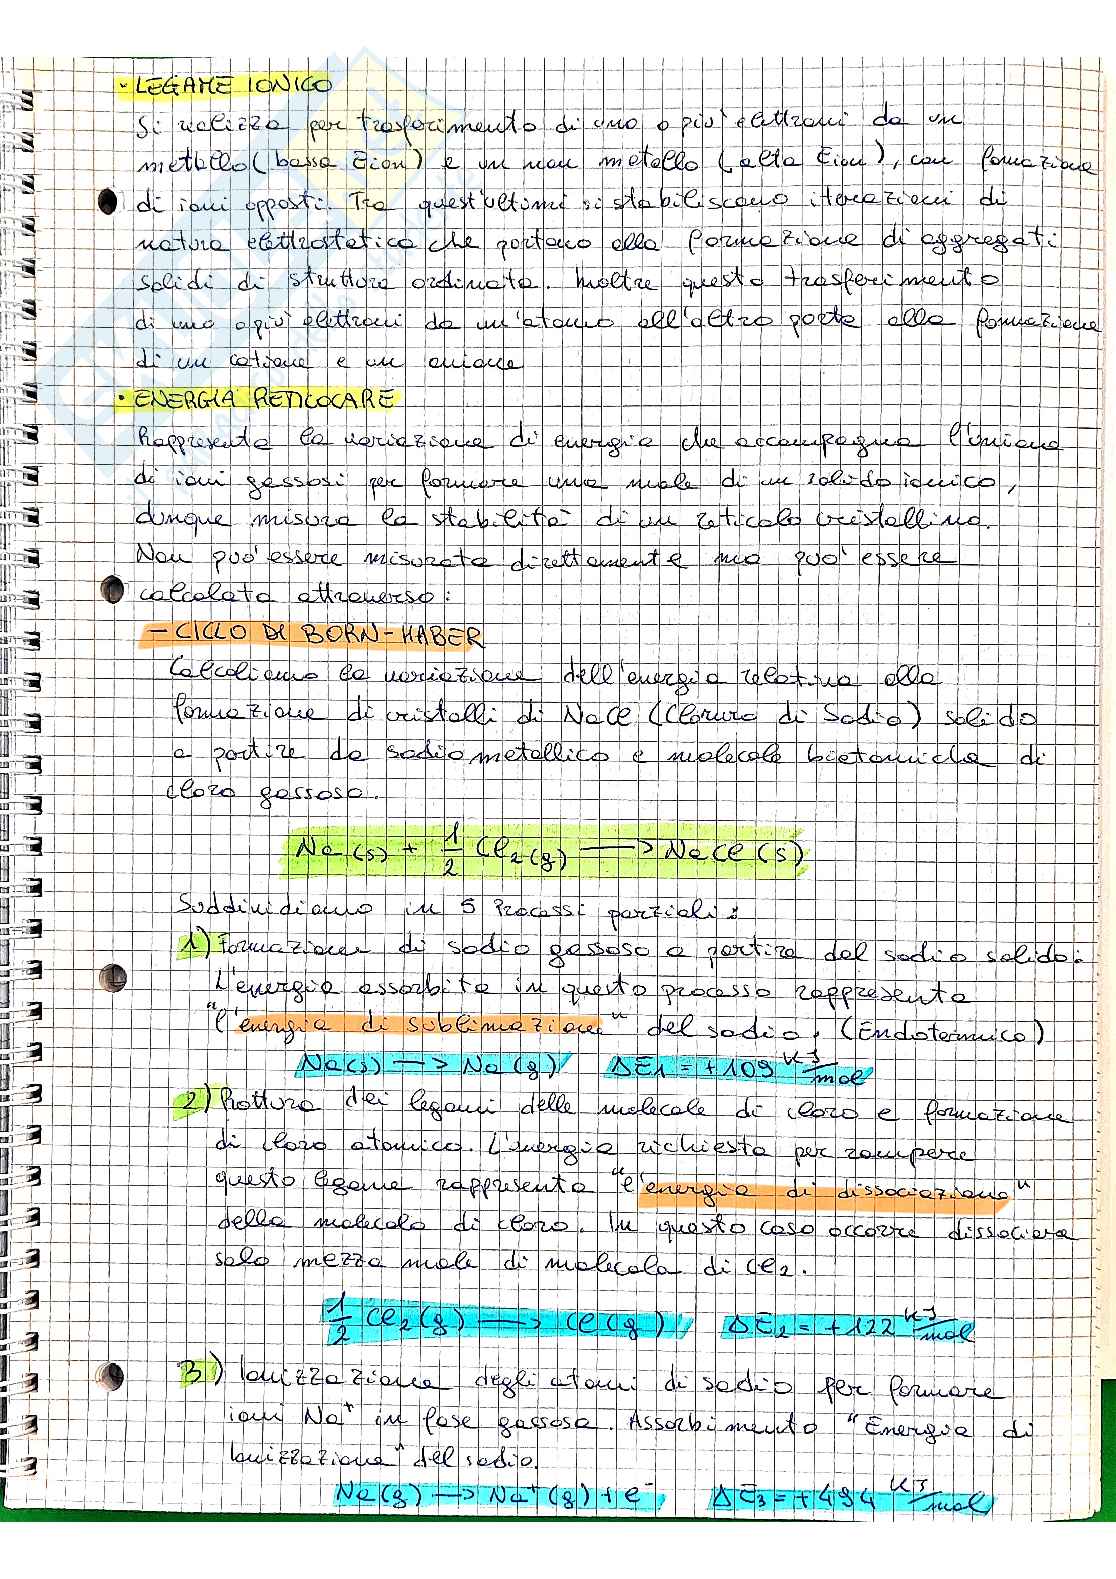 • LEGAME IONICO
Si realizza per trasferimento di uno o più elettroni da un
metallo (bassa Eion) e un non metallo (alta Eion), con formazione
di ioni opposti. Tra quest'ultimi si stabiliscono iterazioni di
natura elettrostatica che portano alla formazione di aggregati
solidi di struttura ordinata. Inoltre questo trasferimento
di uno o più elettroni da un'atomo all'altro porta alla formazione
di un catione e un anione
• ENERGIA RETICOLARE
Rappresenta la variazione di energia che accompagna l'unione
di ioni gassosi per formare una mole di un solido ionico,
dunque misura la stabilità di un reticolo cristallino.
Non può essere misurata direttamente ma può essere
calcolata attraverso:
- CICLO DI BORN-HABER
Calcoliamo la variazione dell'energia relativa alla
formazione di cristalli di NaCl (Cloruro di Sodio) solido
a partire da sodio metallico e molecole biatomiche di
cloro gassoso.
Na(s) + 1/2 Cl2(g) ⟶ NaCl(s)
Suddividiamo in 5 Processi parziali:
1) Formazione di sodio gassoso a partire dal sodio solido.
L'energia assorbita in questo processo rappresenta
"l'energia di sublimazione" del sodio. (Endotermico)
Na(s) ⟶ Na(g) ΔE1 = +109 KJ/mol
2) Rottura dei legami delle molecole di cloro e formazione
di cloro atomico. L'energia richiesta per rompere
questo legame rappresenta "l'energia di dissociazione"
della molecola di cloro. In questo caso occorre dissociare
solo mezza mole di molecola di Cl2.
1/2 Cl2(g) ⟶ Cl(g) ΔE2 = +122 KJ/mol
3) Ionizzazione degli atomi di sodio per formare
ioni Na+ in fase gassosa. Assorbimento "Energia di
Ionizzazione" del sodio.
Na(g) ⟶ Na+(g) + e- ΔE3 = +494 KJ/mol